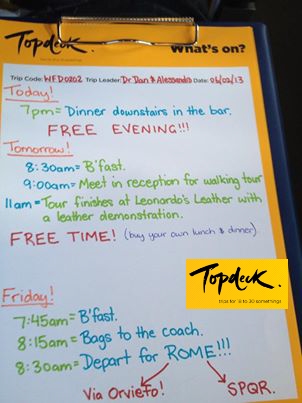 Topdeck.
What's on?
Trip Code: WFD0202 Trip Leader: Dr Dan & Alessandro Date: 06/02/13
Today!
7pm = Dinner downstairs in the bar.
FREE EVENING!!!
Tomorrow!
8:30am = B'fast.
9:00am = Meet in reception for walking tour
11am = Tour finishes at Leonardo's Leather with
a leather demonstration.
FREE TIME! (buy your own lunch & dinner)
Topdeck.
trips for 18 to 30 somethings
Friday!
7:45am = B'fast.
8:15am = Bags to the coach.
8:30am = Depart for ROME!!!
Via Orvieto!
SPQR.